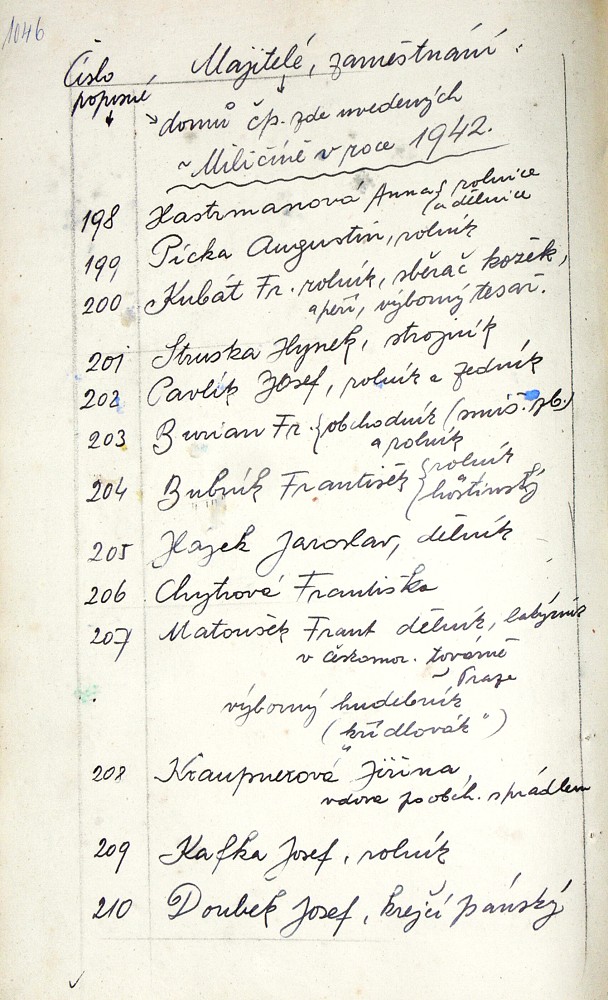 1046
Číslo popisné, Majitelé, zaměstnání
domů čp. zde uvedených
v Miličíně v roce 1942.
198 Hastrmanová Anna { rolnice
a dělnice
199 Picka Augustin, rolník
200 Kubát Fr. rolník, sběrač kozěk,
a peří, výborný tesař.
201 Struska Hynek, strojník
202 Pavlík Josef, rolník a zedník
203 Burian Fr. { obchodník (smíš. zb.)
a rolník
204 Bubník František { rolník
hostinský
205 Hájek Jaroslav, dělník
206 Chytrová Františka
207 Matoušek Frant dělník,
v českomor. továrně
v Praze
výborný hudebník
("křídlovák")
208 Kraupnerová Jiřina
vdova po obch. s prádlem
209 Kafka Josef, rolník
210 Doubek Josef, krejčí pánský